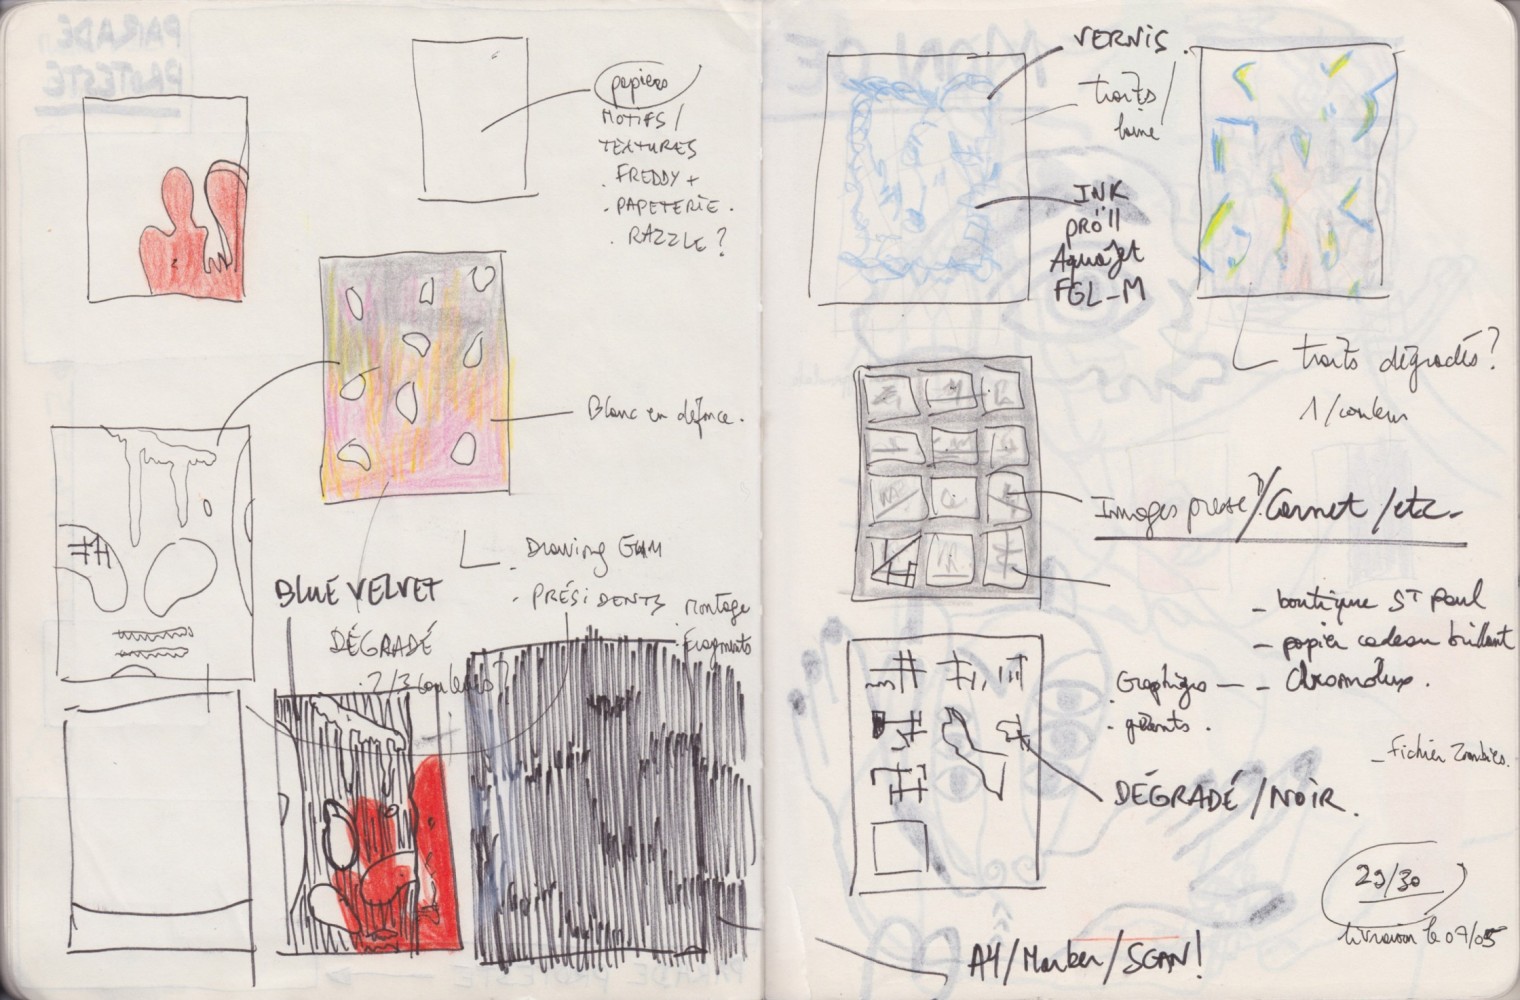 papiers
MOTIFS/
TEXTURES
. FREDDY +
. PAPETERIE.
. RAZZLE?
Blanc en défonce.
. Drawing GUM
. PRÉSIDENTS
Montage
Fragments
BLUE VELVET
DÉGRADÉ
. 2/3 couleurs?
VERNIS.
traits/
INK
pröll
AquaJet
FGL-M
traits dégradés?
1/couleur
Images presse?/Carnet/etc.
- boutique ST Paul
- papier cadeau brillant
- Chromolux.
Graphiges
. géants.
- fichier Zombies.
DÉGRADÉ/NOIR.
29/30
livraison le 07/05
A4/Marker/SCAN!
PARADE
PROTESTE